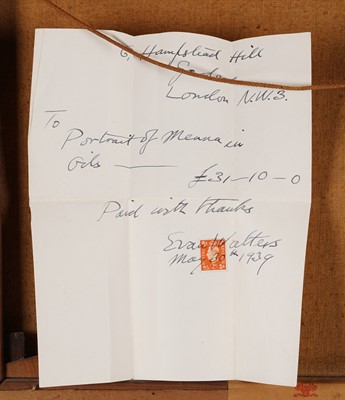 6, Hampstead Hill
Gardens
London N.W.3.
To
Portrait of Menna in
Oils — £31-10-0
Paid with thanks
Evan Walters
May 30th 1939